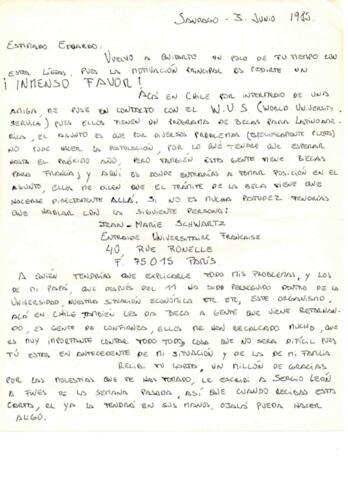 SANTIAGO - 3 JUNIO 1985.
ESTIMADO EDUARDO:
VUELVO A QUITARTE UN POCO DE TU TIEMPO CON
ESTAS LÍNEAS, PUES LA MOTIVACIÓN PRINCIPAL ES PEDIRTE UN
¡INMENSO FAVOR!
ACÁ EN CHILE POR INTERMEDIO DE UNA
AMIGA ME PUSE EN CONTACTO CON EL W.U.S (WORLD UNIVERSITY
SERVICE) PUES ELLOS TIENEN UN PROGRAMA DE BECAS PARA LATINOAMÉ-
RICA, EL ASUNTO ES QUE POR DIVERSOS PROBLEMAS
NO PUDE HACER LA POSTULACIÓN, POR LO QUE TENDRÉ QUE ESPERAR
HASTA EL PRÓXIMO AÑO, PERO TAMBIÉN ESTA GENTE TIENE BECAS
PARA FRANCIA; Y AQUÍ ES DONDE ENTRARÍAS A TOMAR POSICIÓN EN EL
ASUNTO, ELLOS ME DICEN QUE EL TRÁMITE DE LA BECA TIENE QUE
HACERSE DIRECTAMENTE ALLÁ. SI NO ES MUCHA PATUDEZ TENDRÍAS
QUE HABLAR CON LA SIGUIENTE PERSONA:
JEAN-MARIE SCHWARTZ
ENTRAIDE UNIVERSITAIRE FRANCAISE
40, RUE ROUELLE
F. 75.015 PARÍS
A QUIÉN TENDRÍAS QUE EXPLICARLE TODO MIS PROBLEMAS, Y LOS
DE MI PAPÁ, QUE DESPUÉS DEL 11 HA SIDO PERSEGUIDO DENTRO DE LA
UNIVERSIDAD, NUESTRA SITUACIÓN ECONÓMICA ETC. ETC, ESTE ORGANISMO,
ACÁ EN CHILE TAMBIÉN LES DA BECA A GENTE QUE VIENE RETORNAN-
DO, ES GENTE DE CONFIANZA, ELLOS ME HAN RECALCADO MUCHO, QUE
ES MUY IMPORTANTE CONTAR TODO TODO, COSA QUE NO SERÁ DIFÍCIL PUES
TÚ ESTÁS EN ANTECEDENTE DE MI SITUACIÓN Y DE LA DE MI FAMILIA.
RECIBÍ TU CARTA, UN MILLÓN DE GRACIAS
POR LAS MOLESTIAS QUE TE HAS TOMADO, LE ESCRIBÍ A SERGIO LEÓN
A FINES DE LA SEMANA PASADA, ASÍ QUE CUANDO RECIBAS ESTA
CARTA, EL YA LA TENDRÁ EN SUS MANOS, OJALÁ PUEDA HACER
ALGO.